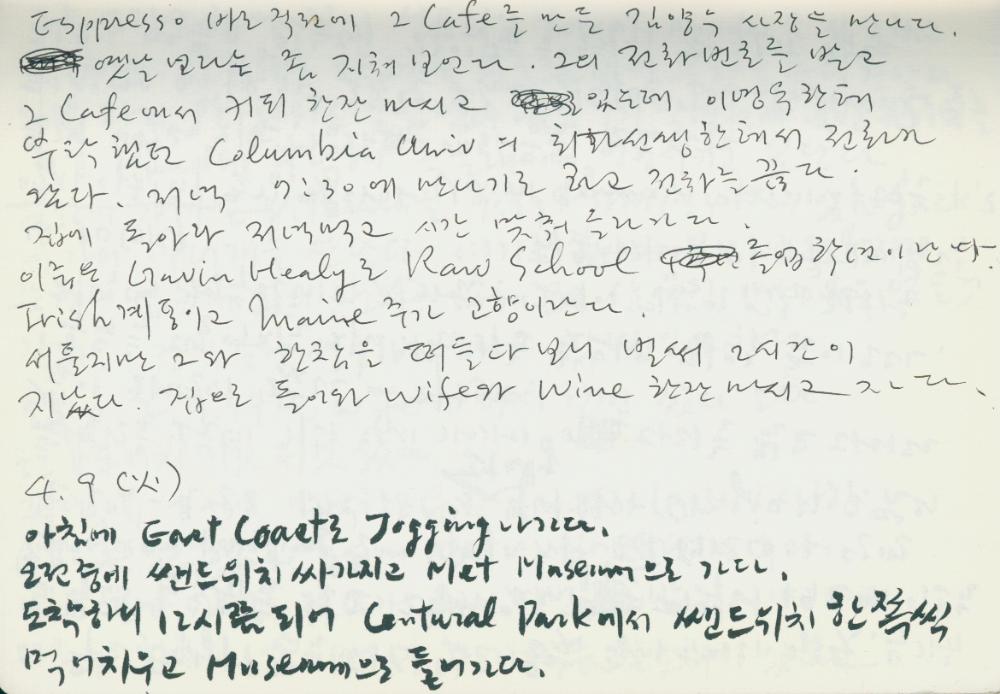 Esppresso 바로 직전에 그 Cafe를 만든 김영수 사장을 만나다.
옛날 보다는 좀 지쳐 보인다. 그의 전화번호를 받고
그 Cafe에서 커피 한잔 마시고 있는데 이명욱한테
부탁했던 Columbia Univ의 회화선생한테서 전화가
왔다. 저녁 7:30에 만나기로 하고 전화를 끊다.
집에 돌아와 저녁먹고 시간 맞춰 올라가다.
이름은 Gavin Healy로 Raw School 졸업학년이란다.
Irish계통이고 Maine 주가 고향이란다.
서툴지만 그와 한참을 떠들다 보니 벌써 2시간이
지났다. 집으로 돌아와 wife와 wine 한잔 마시고 자다.
4. 9 (火)
아침에 East Coast로 Jogging 나가다.
오전중에 쌘드위치 싸가지고 Met Museum으로 가다.
도착하니 12시쯤 되어 Centural Park에서 쌘드위치 한쪽씩
먹어치우고 Museum으로 들어가다.